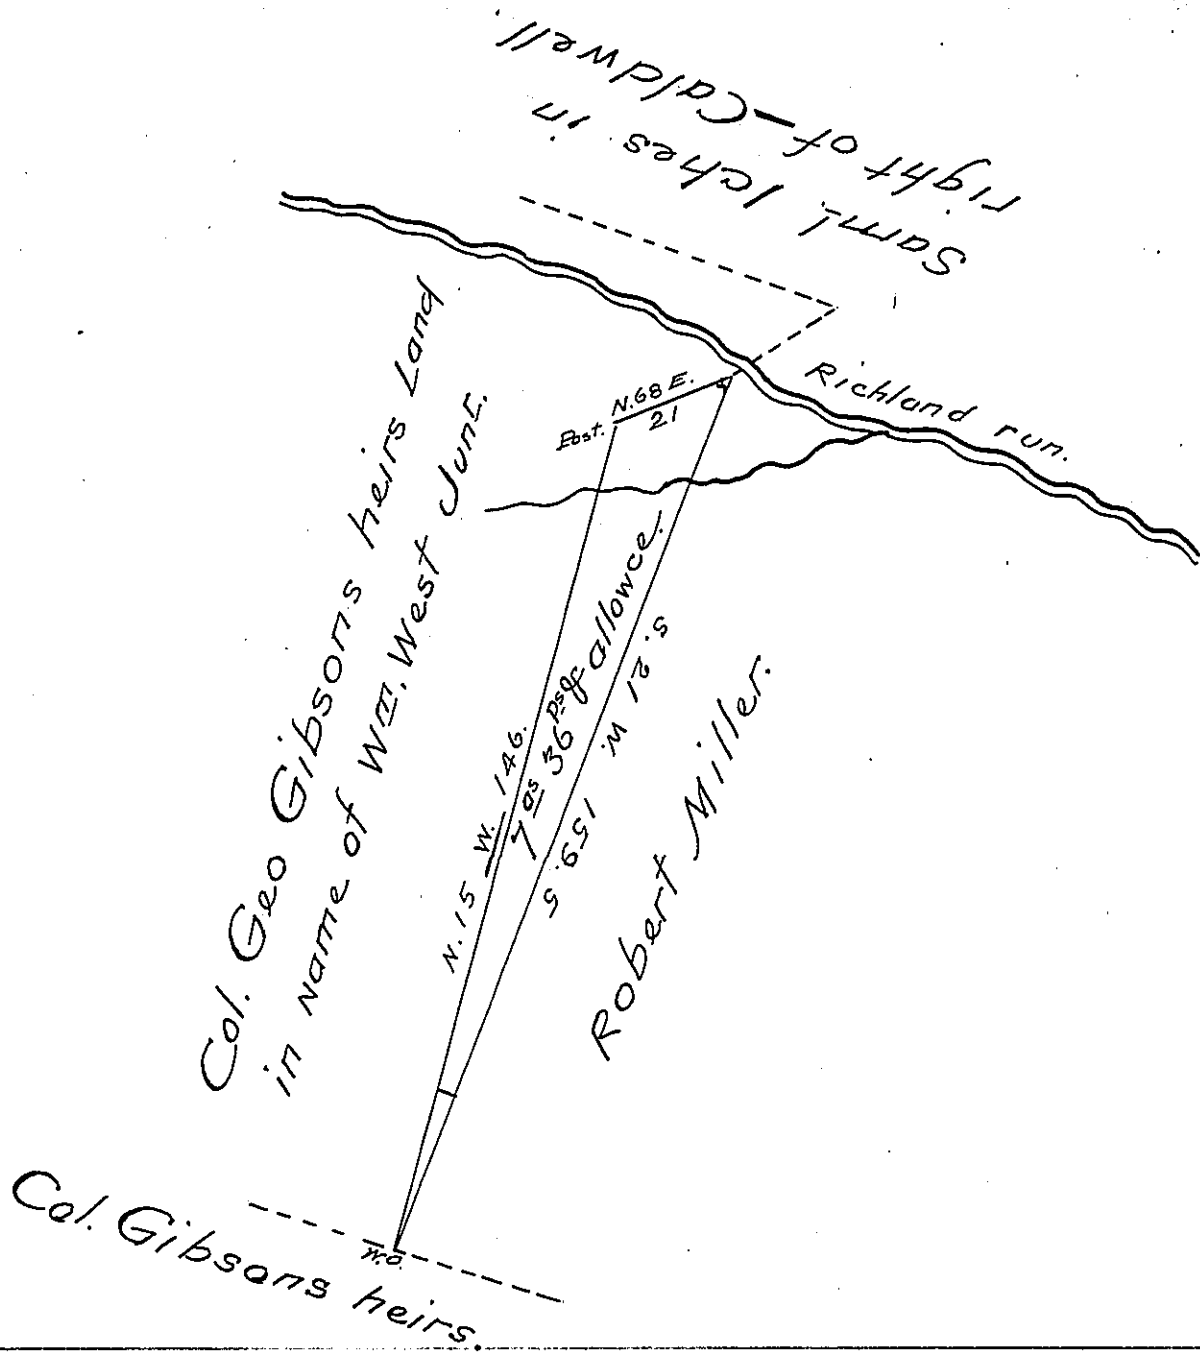 Saml. Iches in
right of - Caldwell.
Richland run.
N. 68 E.
21
Post.
Col. Geo Gibsons heirs Land
in name of Wm. West Junr.
N. 15 W. 146.
7 as 36 ps & allowce.
S. 21 W. 159.5
Robert Miller.
W.O.
Col. Gibsons heirs.